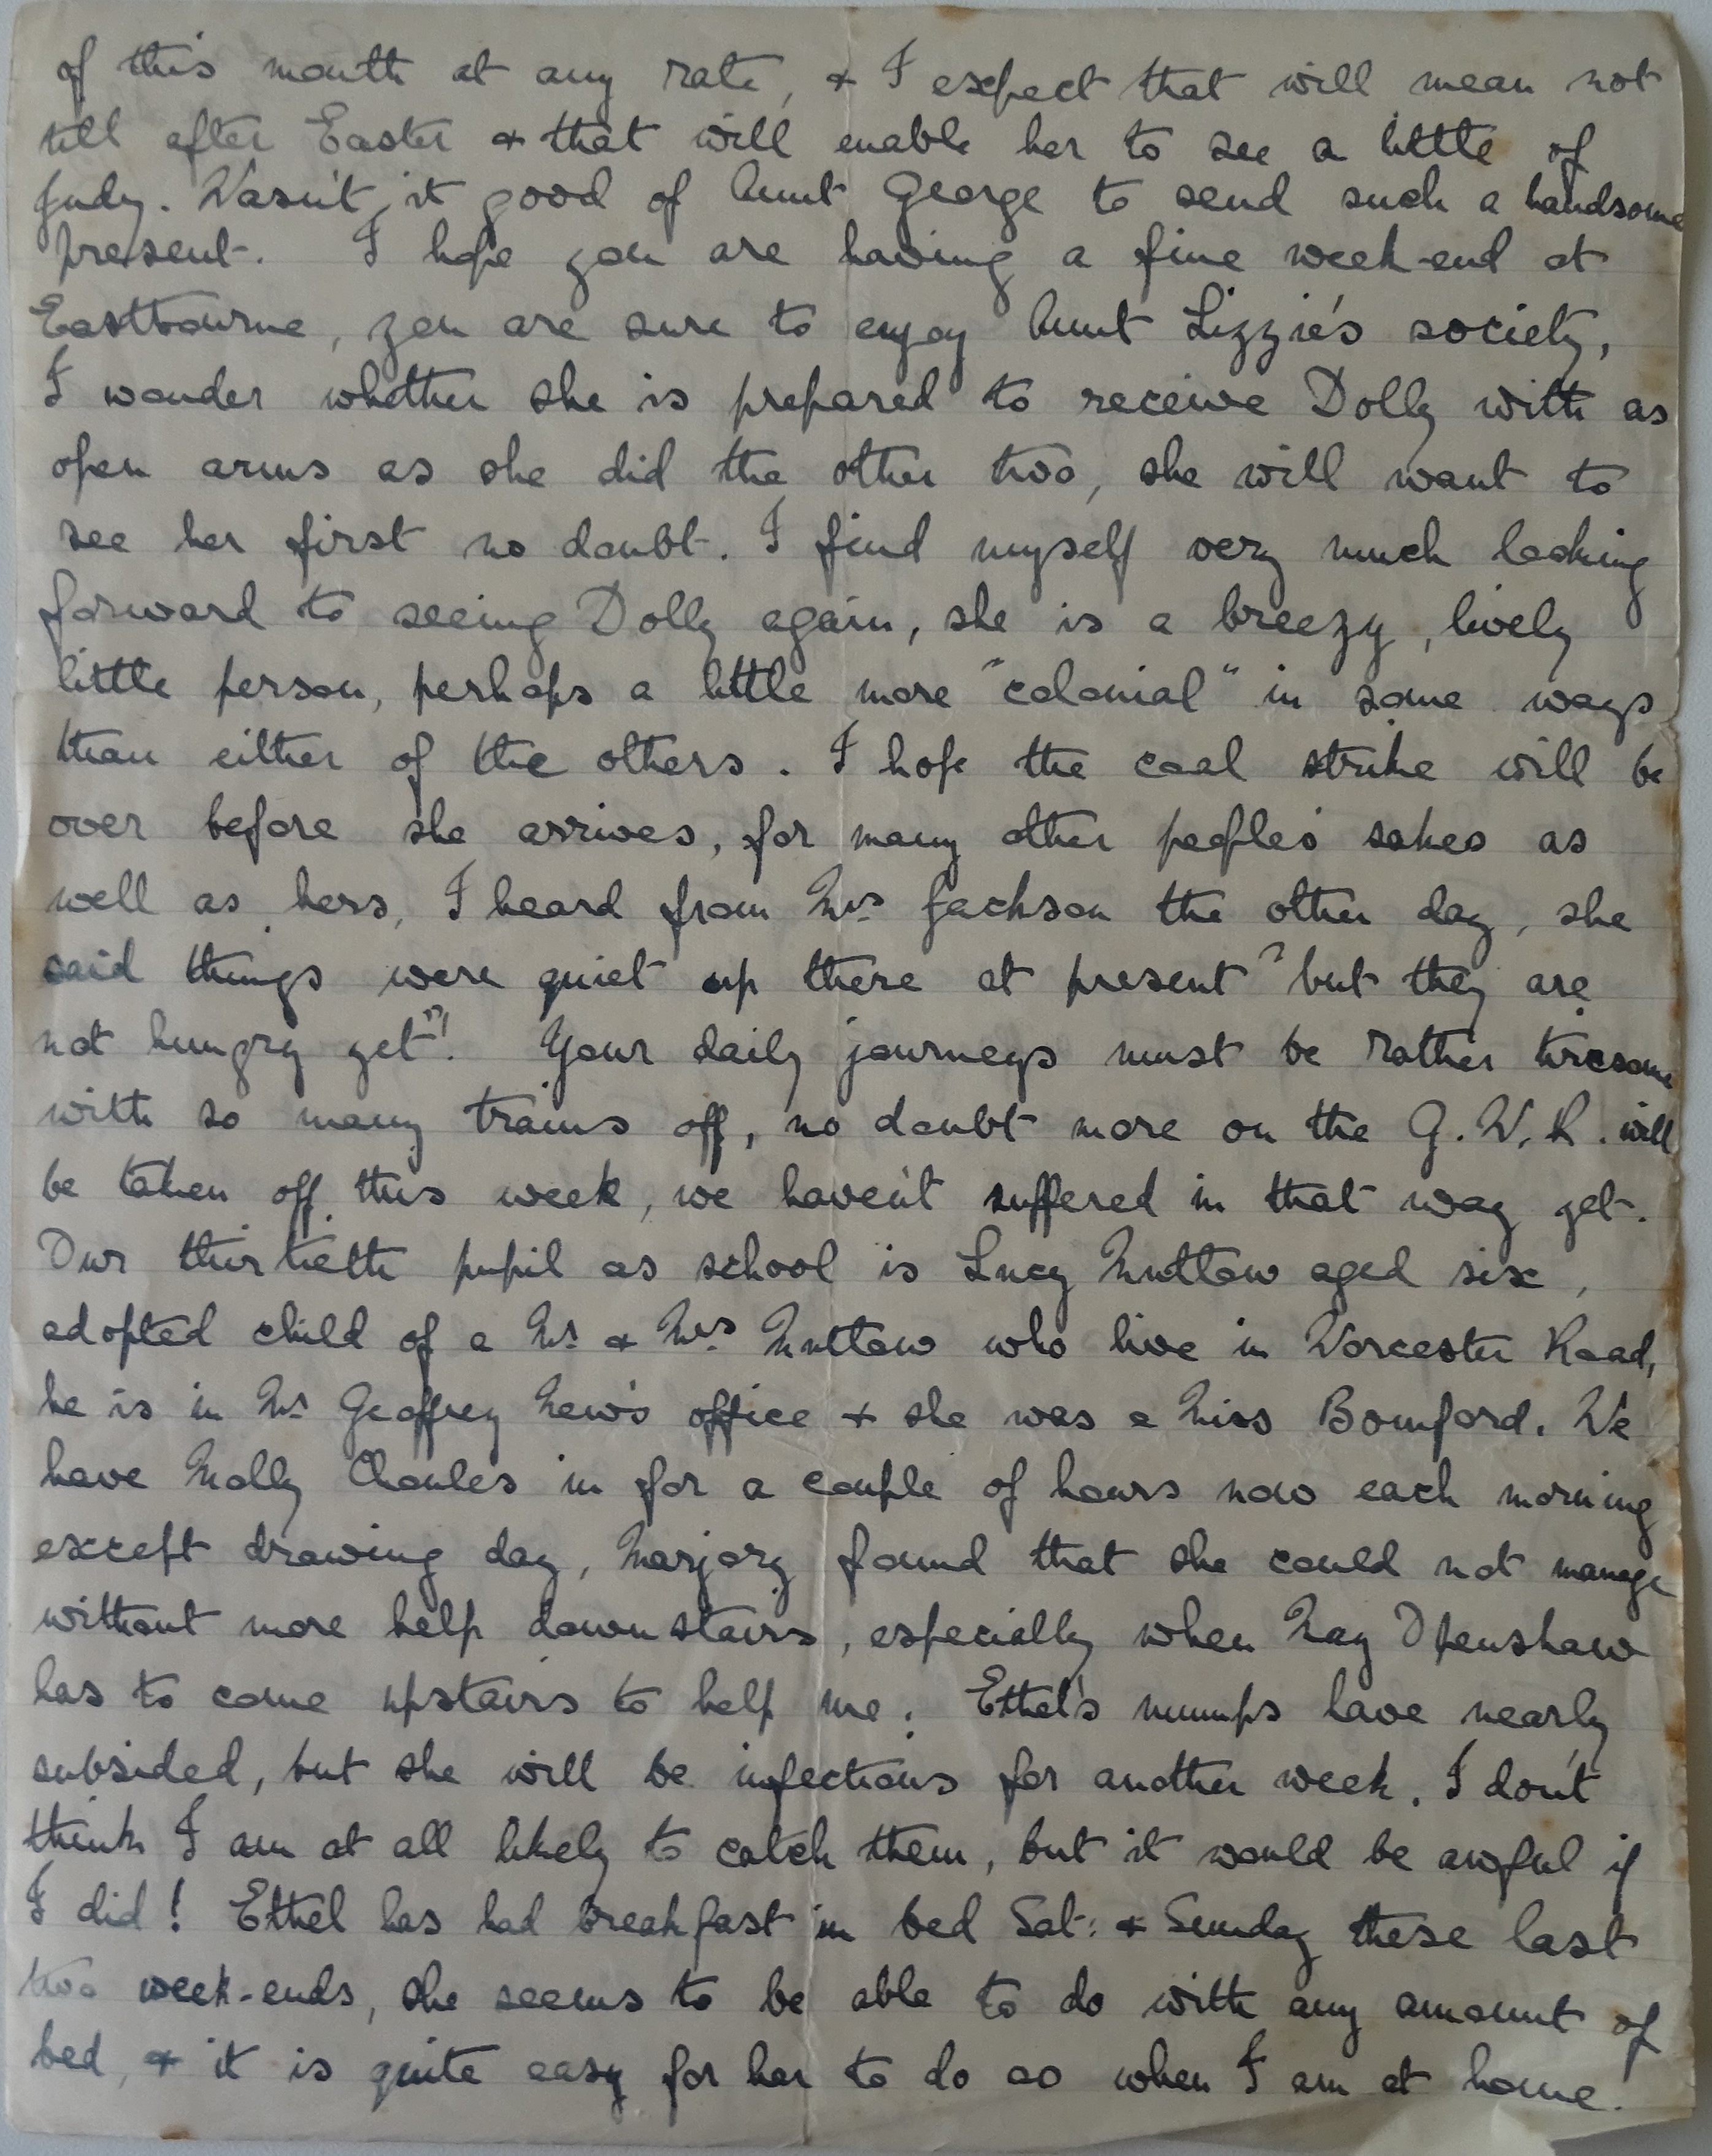 of this month at any rate, & I expect that will mean not
till after Easter & that will enable her to see a little of
Judy. Wasn't it good of Aunt George to send such a handsome
present. I hope you are having a fine week-end at
Eastbourne, you are sure to enjoy Aunt Lizzie's society,
I wonder whether she is prepared to receive Dolly with as
open arms as she did the other two, she will want to
see her first no doubt. I find myself very much looking
forward to seeing Dolly again, she is a breezy, lively
little person, perhaps a little more "colonial" in some ways
than either of the others. I hope the coal strike will be
over before she arrives, for many other people's sakes as
well as hers, I heard from Mrs Jackson the other day, she
said things were quiet up there at present "but they are
not hungry yet"! Your daily journeys must be rather tiresome
with so many trains off, no doubt more on the G.W.R. will
be taken off this week, we haven't suffered in that way yet.
Our thirtieth pupil as school is Lucy aged six,
adopted child of a Mr & Mrs who live in Worcester Road,
he is in Mr Geoffrey New's office & she was a Miss Bomford. We
have Molly in for a couple of hours now each morning
except drawing day, Marjory found that she could not manage
without more help downstairs, especially when May Openshaw
has to come upstairs to help me. Ethel's mumps have nearly
subsided, but she will be infectious for another week. I don't
think I am at all likely to catch them, but it would be awful if
I did! Ethel has had breakfast in bed Sat: & Sunday these last
two week-ends, she seems to be able to do with any amount of
bed, & it is quite easy for her to do so when I am at home.